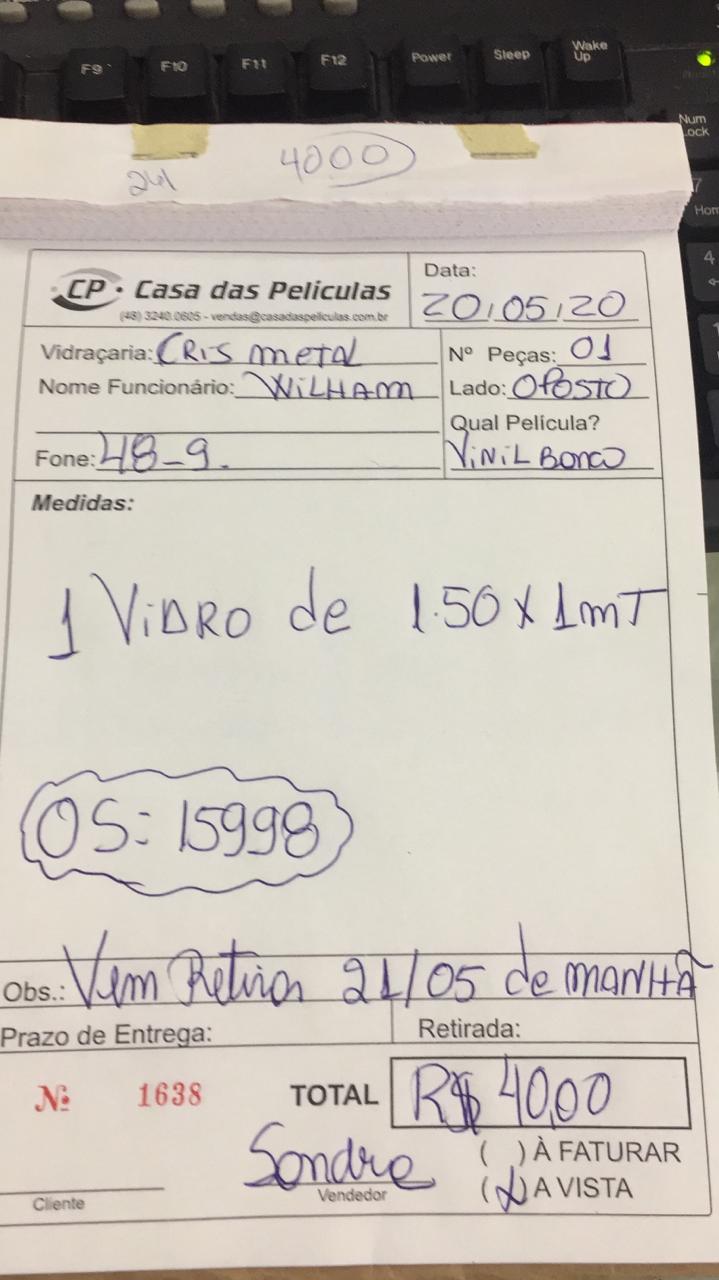 F9 F10 F11 F12 Power Sleep Wake Up
Num Lock
7
Hom
4
241 4000
CP · Casa das Películas
(48) 3240.0605 - vendas@casadaspeliculas.com.br
Data:
20/05/20
Vidraçaria: CRIS METAL
Nº Peças: 01
Nome Funcionário: WILHAM
Lado: OPOSTO
Qual Película?
Fone: 48-9.
VINIL Bonco
Medidas:
1 ViDRO de 1.50 x 1mT
OS: 15998
Obs.: Vem Retirar 21/05 de MANHÃ
Prazo de Entrega:
Retirada:
Nº 1638
TOTAL R$ 40,00
( ) À FATURAR
Sondre
(X) A VISTA
Cliente
Vendedor